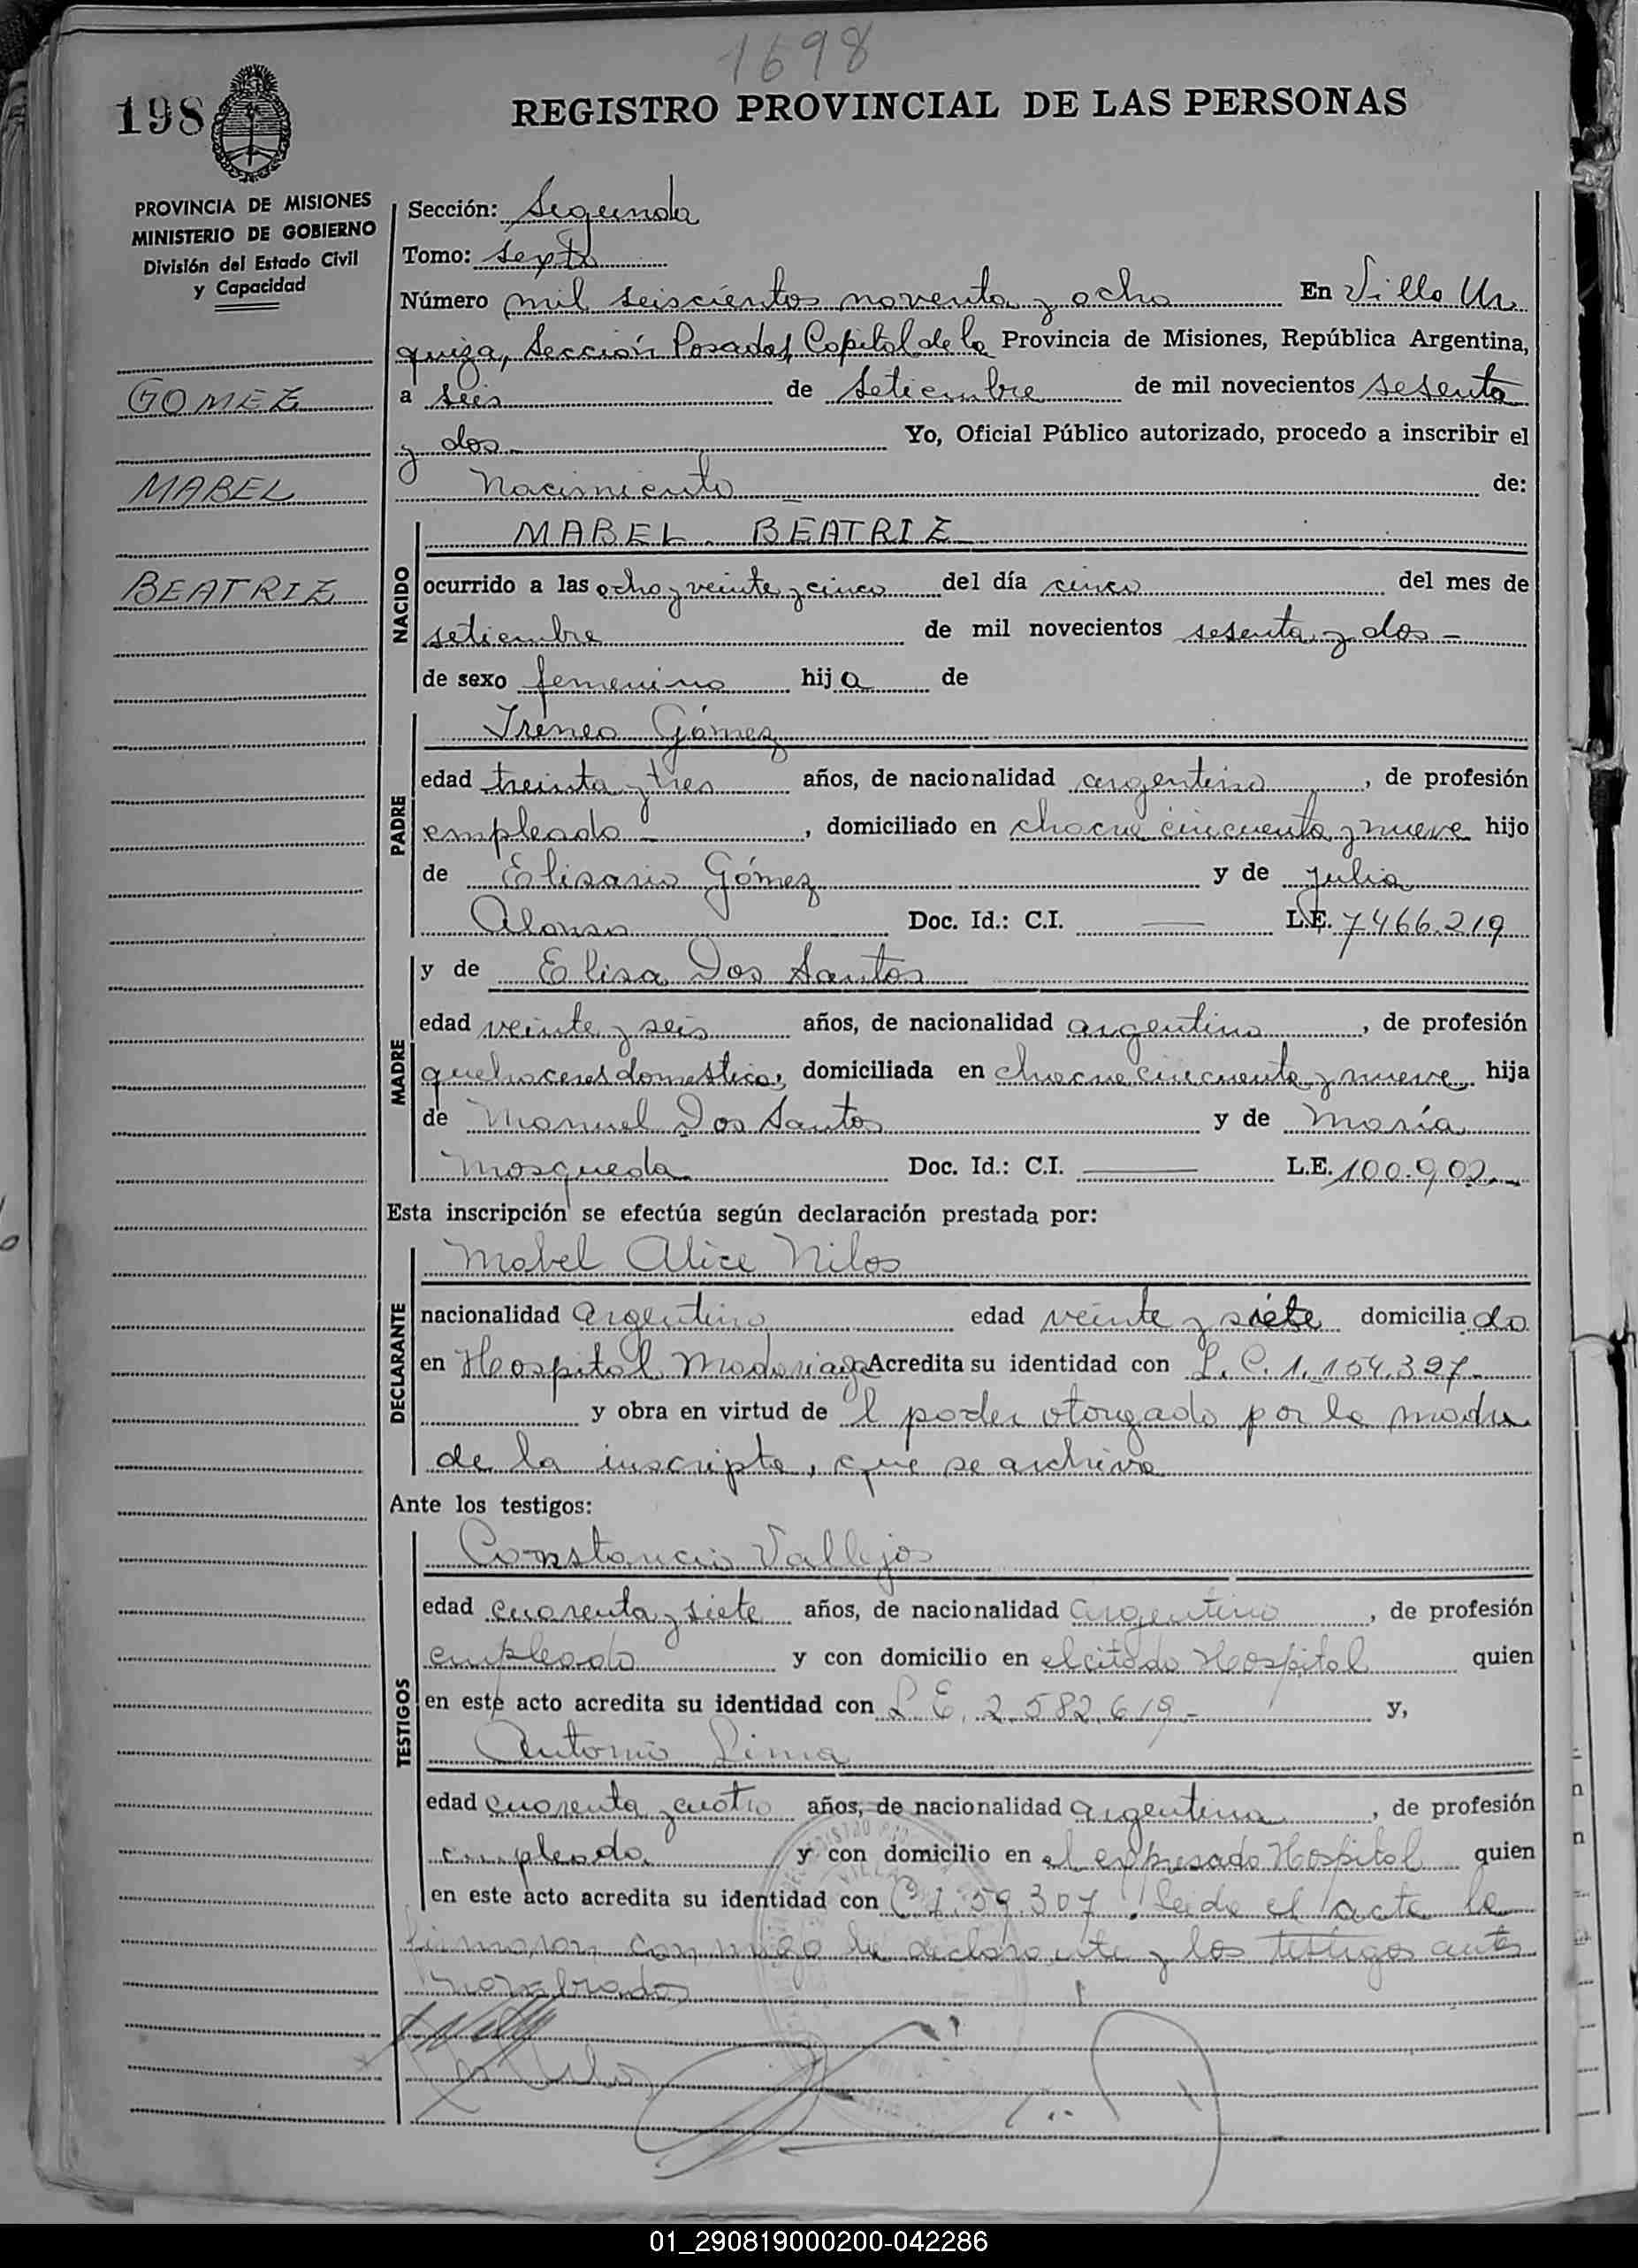 1698
198
REGISTRO PROVINCIAL DE LAS PERSONAS
PROVINCIA DE MISIONES
MINISTERIO DE GOBIERNO
División del Estado Civil
y Capacidad
GOMEZ
MABEL
BEATRIZ
Sección: Segunda
Tomo: sexto
Número mil seiscientos noventa y ocho En Villa Ur
quiza, Sección Posadas, Capital de la Provincia de Misiones, República Argentina,
a seis de setiembre de mil novecientos sesenta
y dos Yo, Oficial Público autorizado, procedo a inscribir el
Nacimiento de:
NACIDO
MABEL BEATRIZ
ocurrido a las ocho y veinte y cinco del día cinco del mes de
setiembre de mil novecientos sesenta y dos -
de sexo femenino hija de
PADRE
Ireneo Gómez
edad treinta y tres años, de nacionalidad argentino, de profesión
empleado, domiciliado en chacra cincuenta y nueve hijo
de Elisario Gómez y de Julia
Alonso Doc. Id.: C.I. — L.E. 7466.219
MADRE
y de Elisa Dos Santos
edad veinte y seis años, de nacionalidad argentina, de profesión
quehaceres domesticos, domiciliada en chacra cincuenta y nueve hija
de Manuel Dos Santos y de María
Mosqueda Doc. Id.: C.I. — L.E. 100.902
Esta inscripción se efectúa según declaración prestada por:
DECLARANTE
Mabel Alice Nilos
nacionalidad argentina edad veinte y siete domiciliada
en Hospital Madariaga Acredita su identidad con L.C. 1.154.397
y obra en virtud de l poder otorgado por la madre
de la inscripta, que se archiva
Ante los testigos:
TESTIGOS
Constancio Vallejos
edad cuarenta y siete años, de nacionalidad argentino, de profesión
empleado y con domicilio en el citado Hospital quien
en este acto acredita su identidad con L E. 2.582.619 - y,
Antonio Lima
edad cuarenta y cuatro años, de nacionalidad argentina, de profesión
empleado y con domicilio en el expresado Hospital quien
en este acto acredita su identidad con C I. 59.307. Leida el acta la
firmaron conmigo la declarante y los testigos antes
nombrados
01_290819000200-042286